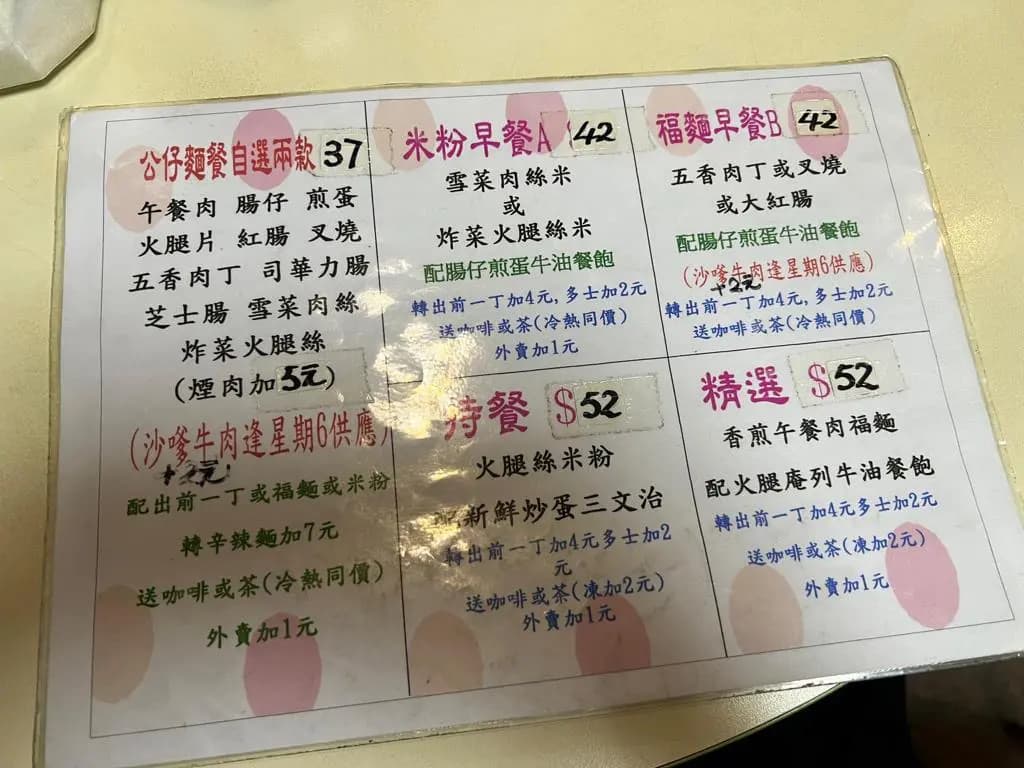 公仔麵餐自選兩款 37
午餐肉 腸仔 煎蛋
火腿片 紅腸 叉燒
五香肉丁 司華力腸
芝士腸 雪菜肉絲
炸菜火腿絲
(煙肉加5元)
(沙嗲牛肉逢星期6供應)
+2元
配出前一丁或福麵或米粉
轉辛辣麵加7元
送咖啡或茶(冷熱同價)
外賣加1元
米粉早餐A 42
雪菜肉絲米
或
炸菜火腿絲米
配腸仔煎蛋牛油餐飽
轉出前一丁加4元,多士加2元
送咖啡或茶(冷熱同價)
外賣加1元
福麵早餐B 42
五香肉丁或叉燒
或大紅腸
配腸仔煎蛋牛油餐飽
(沙嗲牛肉逢星期6供應)
+2元
轉出前一丁加4元,多士加2元
送咖啡或茶(冷熱同價)
特餐 $52
火腿絲米粉
配新鮮炒蛋三文治
轉出前一丁加4元多士加2
元
送咖啡或茶(凍加2元)
外賣加1元
精選 $52
香煎午餐肉福麵
配火腿庵列牛油餐飽
轉出前一丁加4元多士加2元
送咖啡或茶(凍加2元)
外賣加1元